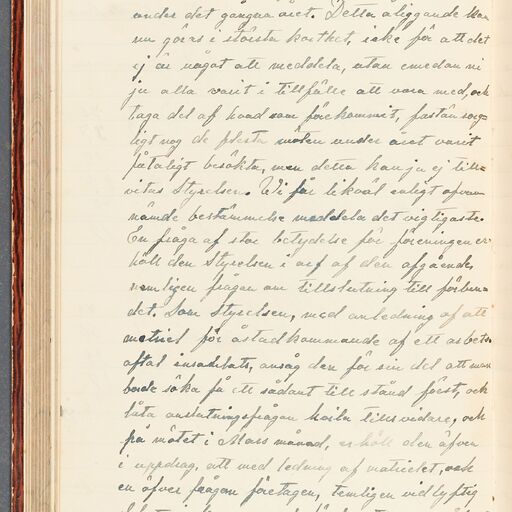 under det gångna året. Detta åliggande kan
nu göras i största korthet, icke för att det
ej är något att meddela, utan emedan ni
ju alla varit i tillfälle att vara med, och
taga del af hvad som förekommit, fastän sorg-
ligt nog de flesta möten under året varit
fåtaligt besökta, men detta kan ju ej till-
vitas Styrelsen. Vi får likväl enligt ofvan
nämde bestämmelse meddela det vigtigaste.
En fråga af stor betydelse för föreningen er-
höll den Styrelsen i arf af den afgående,
nemligen frågan om tillslutning till förbun-
det. Som Styrelsen, med anledning af att
matriel för åstadkommande af ett arbets-
aftal insamlats, ansåg den för sin del att man
borde söka få ett sådant till stånd först, och
låta anslutningsfrågan hvila tillsvidare, och
på mötet i Mars månad, erhöll den äfven
i uppdrag, att med ledning af matrielet, och
en öfver frågan företagen, temligen vidlyftig